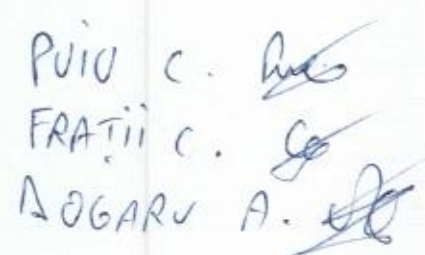 PUIU C.
FRAȚII C.
DOGARU A.